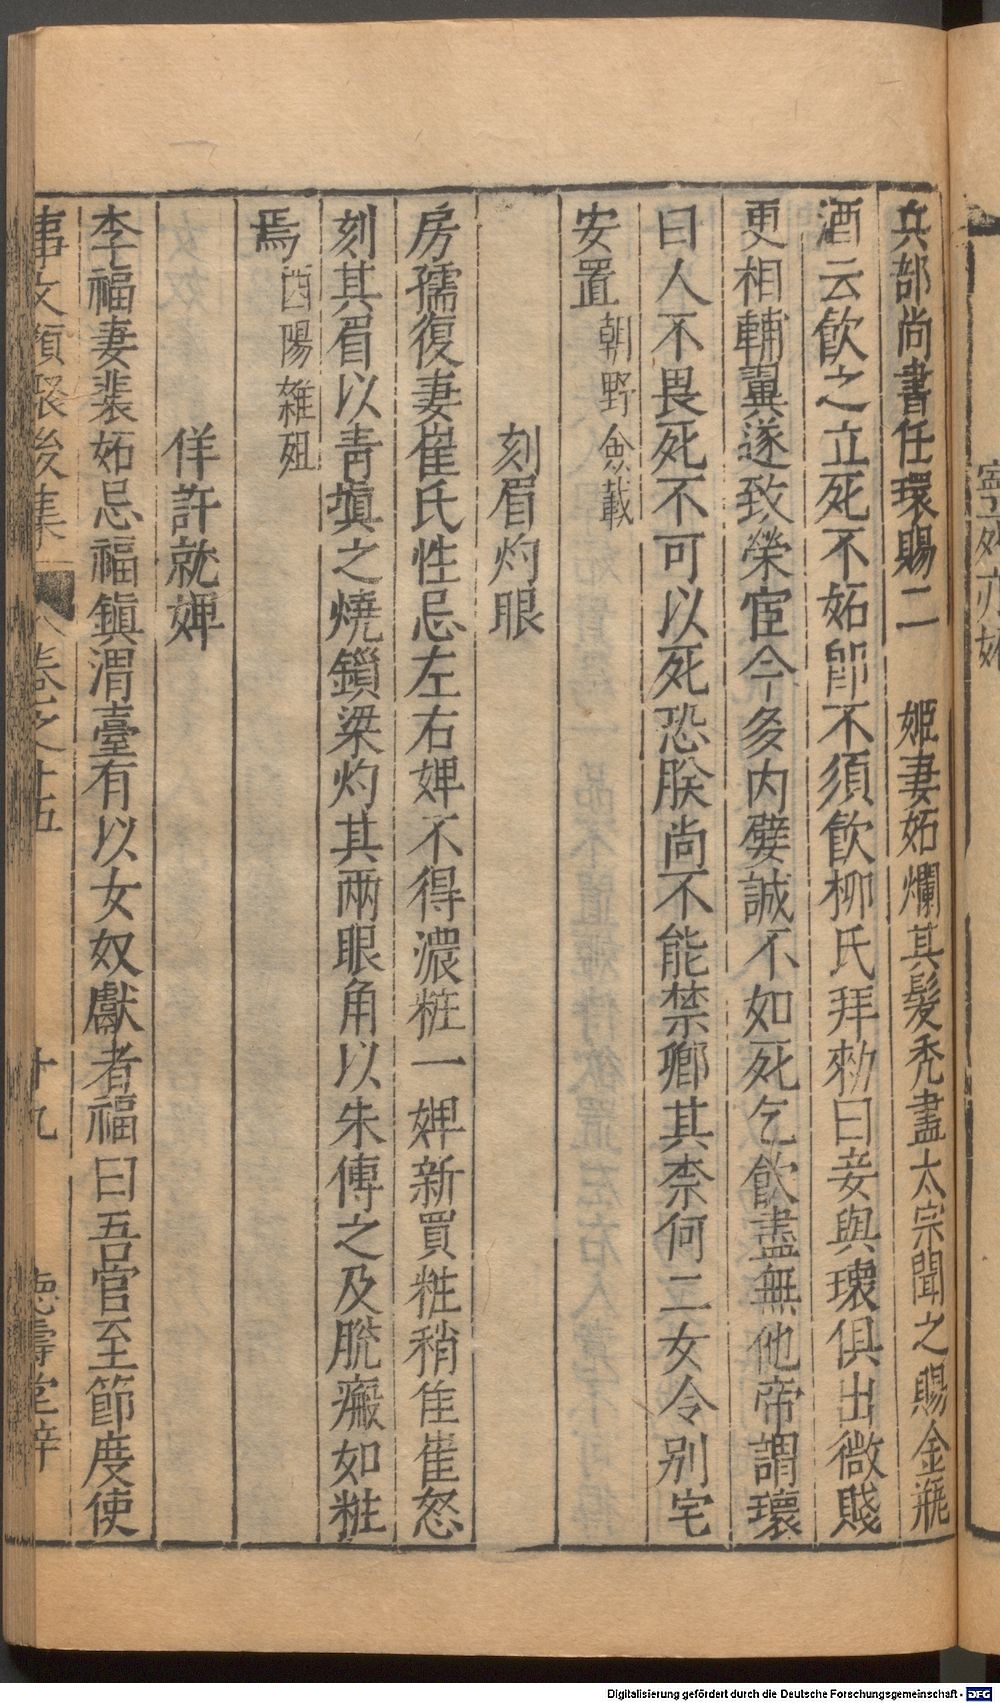 兵部尚書任環賜二　姬妻妬爛其髮禿盡太宗聞之賜金瓶
酒云飲之立死不妬卽不須飲柳氏拜勑曰妾與瓌俱出微賤
更相輔翼遂致榮宦今多內嬖誠不如死乞飲盡無他帝謂瓌
曰人不畏死不可以死恐朕尚不能禁鄉其柰何二女令别宅
安置朝野僉載
刻眉灼眼
房孺復妻崔氏性忌左右婢不得濃粧一婢新買粧稍佳崔怒
刻其眉以青塡之燒鎖梁灼其兩眼角以朱傅之及脫瘢如粧
焉酉陽雜俎
佯許就婢
李福妻裴妬忌福鎭渭臺有以女奴獻者福曰吾官至節度使
事文類聚後集　卷之十五　十九　德壽堂梓
寧死亦妬
Digitalisierung gefördert durch die Deutsche Forschungsgemeinschaft - DFG